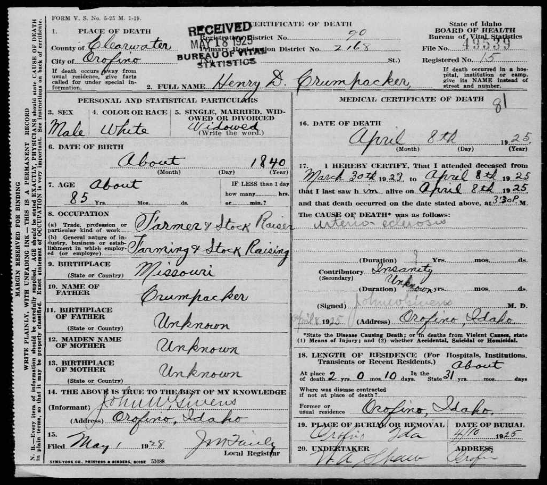 FORM V. S. No. 5-25 M. 1-19.
CERTIFICATE OF DEATH
State of Idaho
BOARD OF HEALTH
Bureau of Vital Statistics
1. PLACE OF DEATH
County of Clearwater
City of Orofino
RECEIVED
MAY 18 1925
BUREAU OF VITAL
STATISTICS
Registration District No. 70
Registration District No. 2168
St.)
File No. 49539
Registered No. 15
If death occurs away from
usual residence, give facts
called for under special information.
If death occurred in a hospital, institution or camp,
give its NAME instead of
street and number.
2. FULL NAME Henry D. Crumpacker
81
PERSONAL AND STATISTICAL PARTICULARS
3. SEX
Male
4. COLOR OR RACE
White
5. SINGLE, MARRIED, WIDOWED OR DIVORCED
Widowed
(Write the word.)
6. DATE OF BIRTH
About 1840
(Month) (Day) (Year)
7. AGE About
85 Yrs. Mos. ds.
IF LESS than 1 day
how many hrs.
or min.?
8. OCCUPATION
(a) Trade, profession or
particular kind of work
Farmer & Stock Raiser
(b) General nature of industry, business or establishment in which employed (or employer)
Farming & Stock Raising
9. BIRTHPLACE
(State or Country)
Missouri
10. NAME OF
FATHER
Crumpacker
11. BIRTHPLACE
OF FATHER
(State or Country)
Unknown
12. MAIDEN NAME
OF MOTHER
Unknown
13. BIRTHPLACE
OF MOTHER
(State or Country)
Unknown
14. THE ABOVE IS TRUE TO THE BEST OF MY KNOWLEDGE
(Informant) John W Givens
(Address) Orofino, Idaho
15.
Filed May 1 1928
Local Registrar
SYMS-YORK CO., PRINTERS & BINDERS, BOISE 53088
MEDICAL CERTIFICATE OF DEATH
16. DATE OF DEATH
April 8th 1925
(Month) (Day) (Year)
17. I HEREBY CERTIFY, That I attended deceased from
March 30th 1923 to April 8th 1925
that I last saw him alive on April 8th 1925
and that death occurred on the date stated above, at 3:30 P. M.
The CAUSE OF DEATH* was as follows:
arterio sclerosis
(Duration) ? yrs. mos. ds.
Contributory Insanity
(Secondary)
(Duration) Unknown yrs. mos. ds.
(Signed) John W Givens M. D.
April 8 1925 (Address) Orofino, Idaho
*State the Disease Causing Death; or in deaths from Violent Causes, state
(1) Means of Injury; and (2) whether Accidental, Suicidal or Homicidal.
18. LENGTH OF RESIDENCE (For Hospitals, Institutions,
Transients or Recent Residents.)
At place of death 2 yrs. 0 mos. 10 days. In the State About 31 yrs. mos. ds.
Where was disease contracted
if not at place of death?
Former or
usual residence Orofino, Idaho.
19. PLACE OF BURIAL OR REMOVAL
Orofino Ida
DATE OF BURIAL
4/10 1925
20. UNDERTAKER
W A Shaw
ADDRESS
Orofino
MARGIN RESERVED FOR BINDING
WRITE PLAINLY, WITH UNFADING INK—THIS IS A PERMANENT RECORD